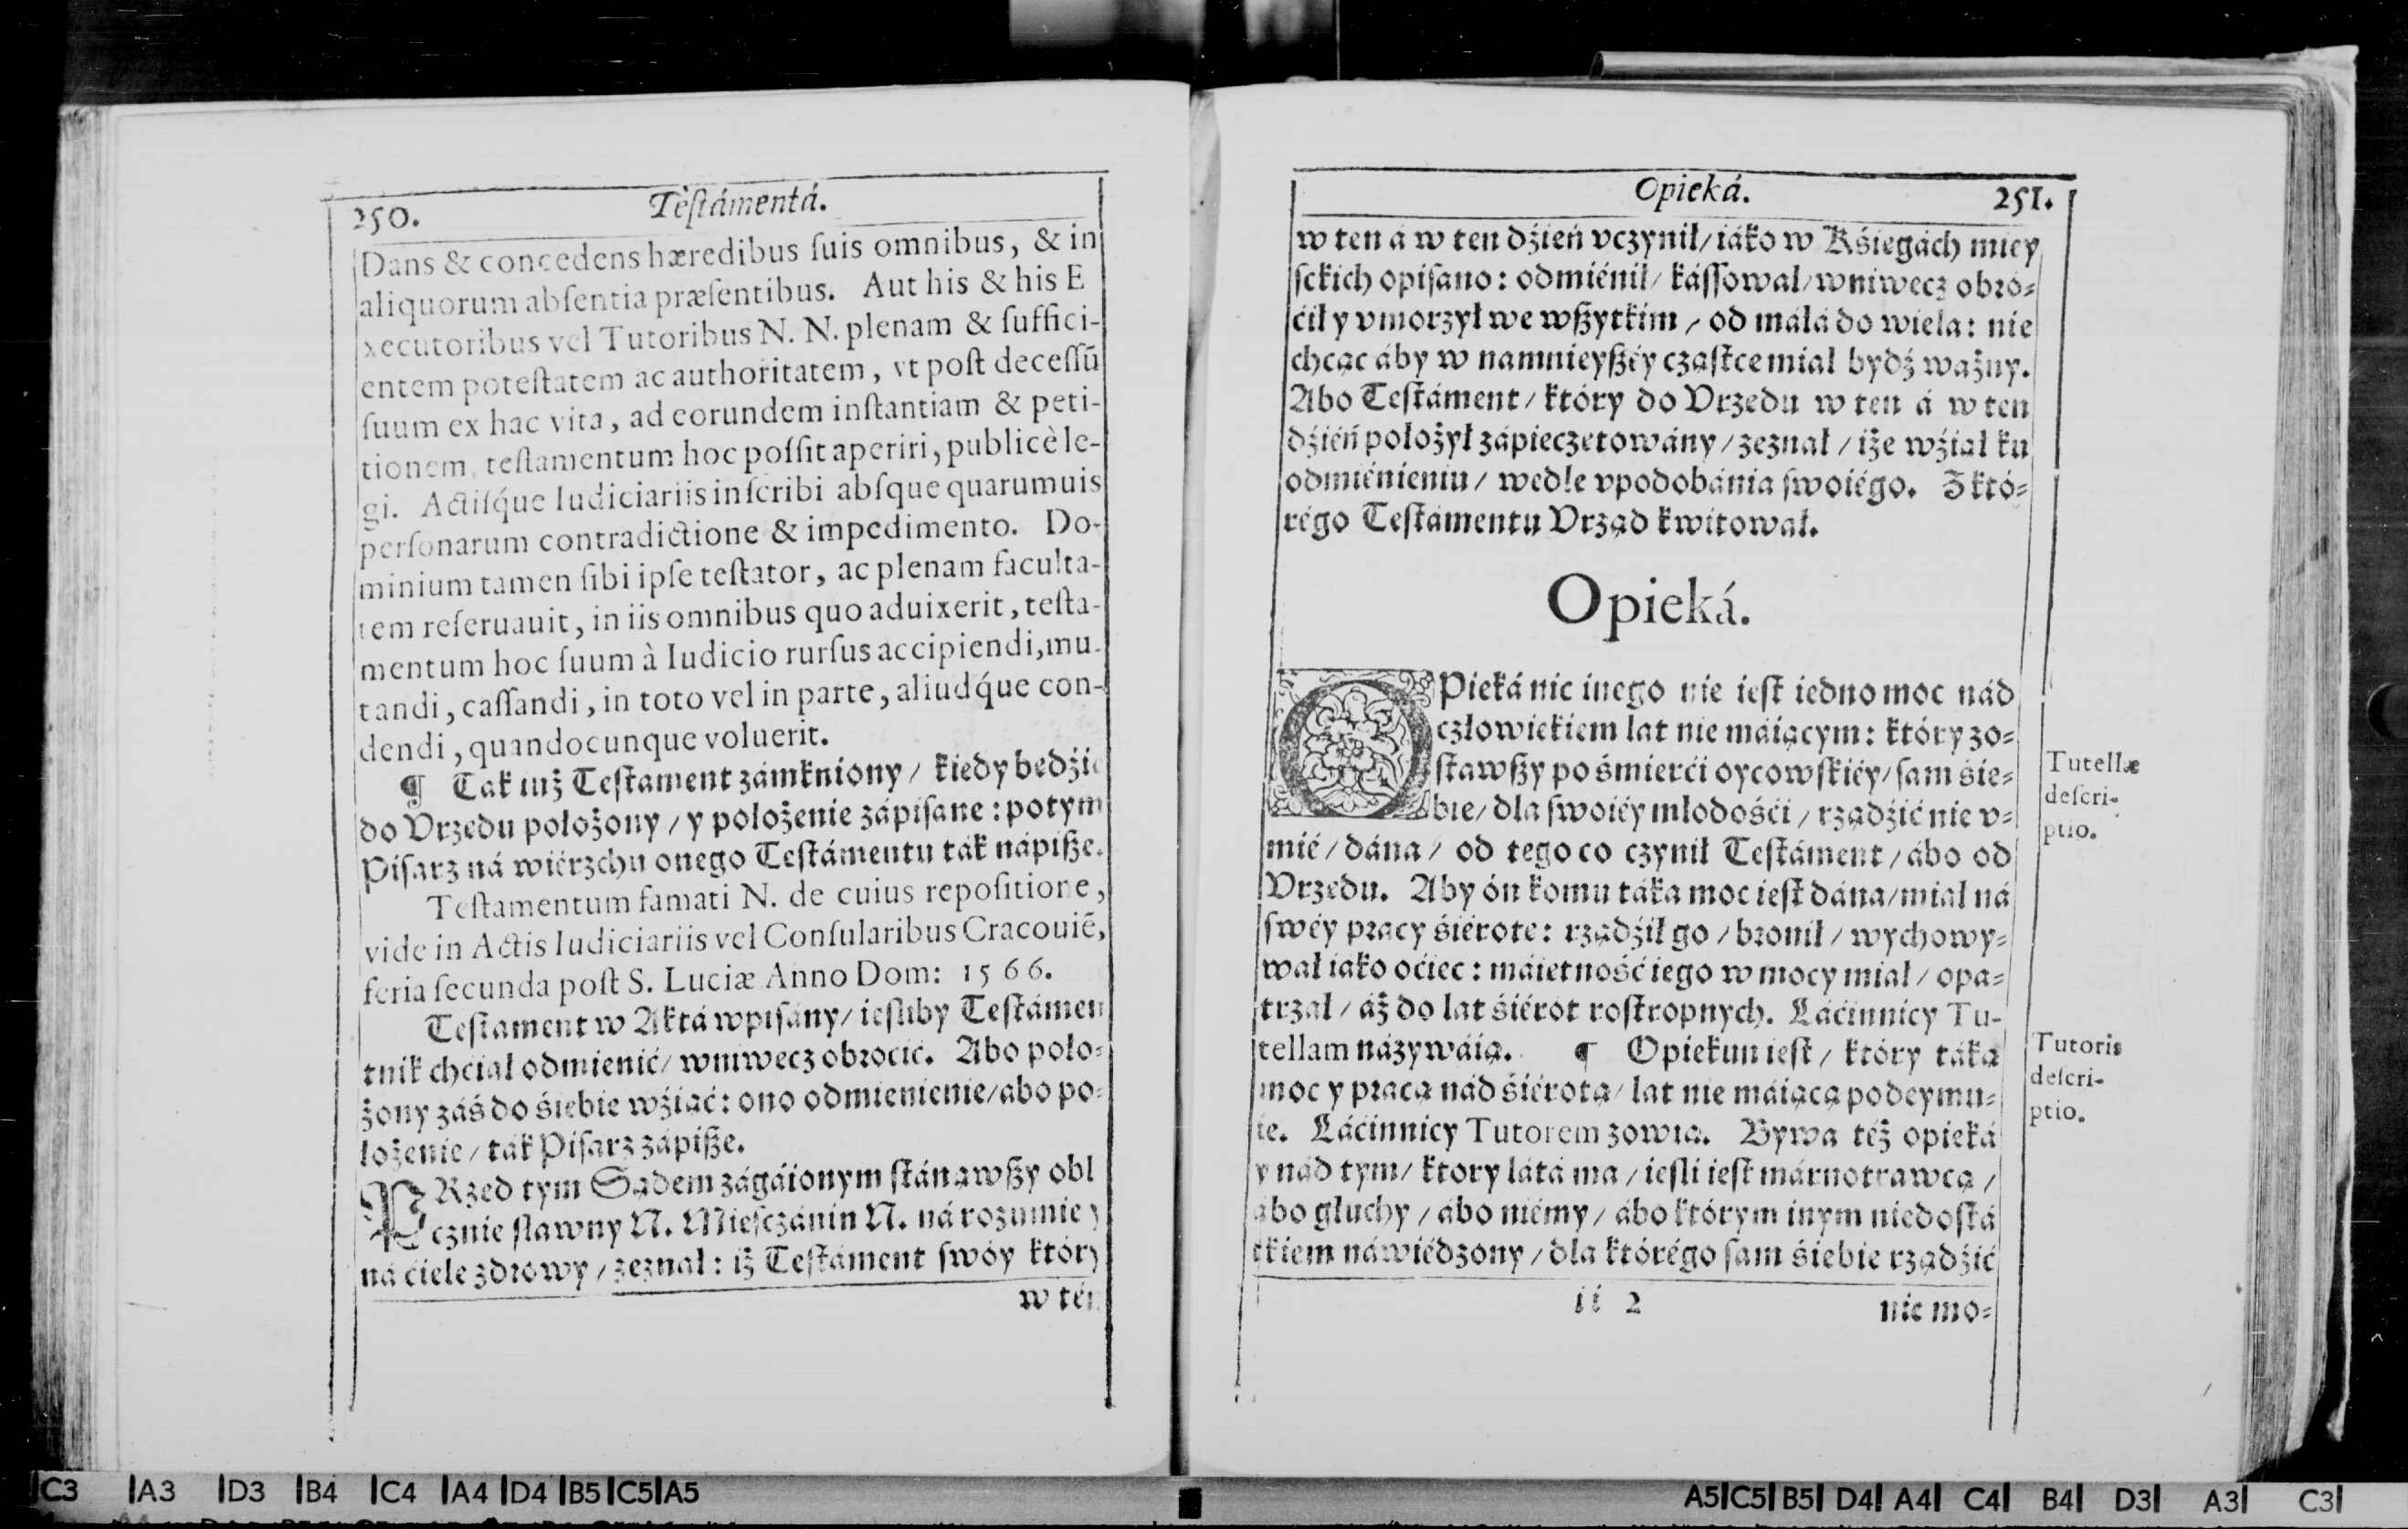 250. Tèſtámentá.
Dans & concedens hæredibus ſuis omnibus, & in
aliquorum abſentia præſentibus. Aut his & his E
xecutoribus vel Tutoribus N. N. plenam & ſuffici-
entem poteſtatem ac authoritatem, vt poſt deceſſũ
ſuum ex hac vita, ad eorundem inſtantiam & peti-
tionem, teſtamentum hoc poſſit aperiri, publicè le-
gi. Actiſq́ue Iudiciariis inſcribi abſque quarumuis
perſonarum contradictione & impedimento. Do-
minium tamen ſibi ipſe teſtator, ac plenam faculta-
tem reſeruauit, in iis omnibus quo aduixerit, teſta-
mentum hoc ſuum à Iudicio rurſus accipiendi, mu-
tandi, caſſandi, in toto vel in parte, aliudq́ue con-
dendi, quandocunque voluerit.
¶ Ták iuż Teſtament zámkniony / kiedy bedźie
do Vrzedu położony / y położenie zápiſane: potym
Piſarz ná wiérzchu onego Teſtámentu ták nápiſze.
Teſtamentum famati N. de cuius repoſitione,
vide in Actis Iudiciariis vel Conſularibus Cracouiẽ,
feria ſecunda poſt S. Luciæ Anno Dom: 1566.
Teſtament w Aktá wpiſány / ieſliby Teſtámen
tnik chciał odmienić / wniwecz obrocić. Abo poło-
żony záś do śiebie wźiąć: ono odmienienie / abo po-
łożenie / ták Piſarz zápiſze.
PRzed tym Sądem zágáionym ſtánąwſzy obl
cznie ſławny N. Mieſczánin N. ná rozumie y
ná ćiele zdrowy / zeznał: iż Teſtáment ſwóy który
w tén
Opieká. 251.
w ten á w ten dźień vczynił / iáko w Kśięgách miey
ſckich opiſano: odmiénił / káſſował / wniwecz obró-
ćił y vmorzył we wſzytkim / od máłá do wiela: nie
chcąc áby w namnieyſzéy cząſtce miał bydź ważny.
Abo Teſtáment / który do Vrzedu w ten á w ten
dźiéń położył zápieczetowány / zeznał / iże wźiął ku
odmiénieniu / wedle vpodobánia ſwoiégo. Z któ-
régo Teſtámentu Vrząd kwitował.
Opieká.
OPieká nic inego nie ieſt iedno moc nád
człowiekiem lat nie máiącym: który zo-
ſtawſzy po śmierći oycowſkiéy / ſam śie-
bie / dla ſwoiéy młodośći / rządźić nie v-
mié / dána / od tego co czynił Teſtáment / ábo od
Vrzedu. Aby ón komu táka moc ieſt dána / miał ná
ſwéy pracy śiérote: rządźił go / bronił / wychowy-
wał iako oćiec: máietność iego w mocy miał / opa-
trzał / áż do lat śiérot roſtropnych. Láćinnicy Tu-
tellam názywáią. ¶ Opiekun ieſt / który táką
moc y pracą nád śiérotą / lat nie máiącą podeymu-
ie. Láćinnicy Tutorem zowią. Bywa téż opieká
y nád tym / ktory látá ma / ieſli ieſt márnotrawcą /
ábo głuchy / ábo niémy / ábo którym inym niedoſtá
tkiem náwiédzony / dla którégo ſam śiebie rządźić
ii 2 nie mo-
Tutellæ
deſcri-
ptio.
Tutoris
deſcri-
ptio.
C3 A3 D3 B4 C4 A4 D4 B5 C5 A5
A5 C5 B5 D4 A4 C4 B4 D3 A3 C3